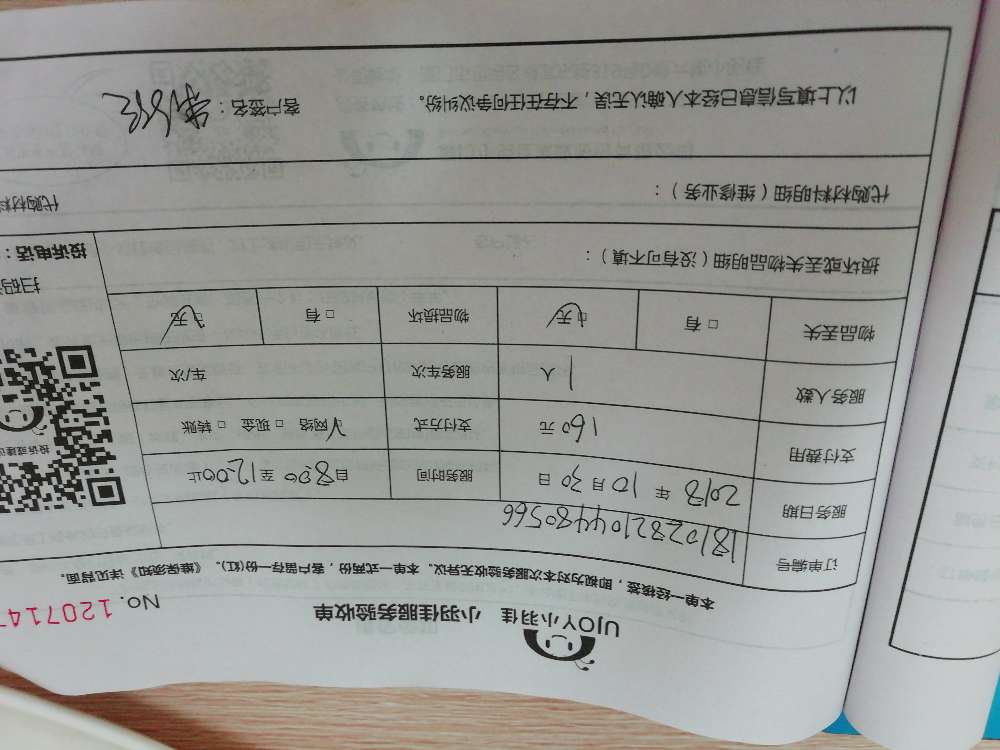 UJOY小羽佳 小羽佳服务验收单
No. 120714
本单一经核签，即视为对本次服务验收无异议。本单一式两份，客户留存一份(红)。《维保须知》详见背面。
订单编号 1810282104480566
服务日期 2018 年 10 月 30 日 服务时间 自 8:00 至 12:00 止
支付费用 160 元 支付方式 ☑网络 □ 现金 □ 转账
服务人数 1 人 服务车次 车/次
物品丢失 □ 有 ☑无 物品损坏 □ 有 ☑无
损坏或丢失物品明细（没有可不填）：
投诉或建议
扫码
投诉电话：
代购材料明细（维修业务）：
代购材料
以上填写信息已经本人确认无误，不存在任何争议纠纷。 客户签名：